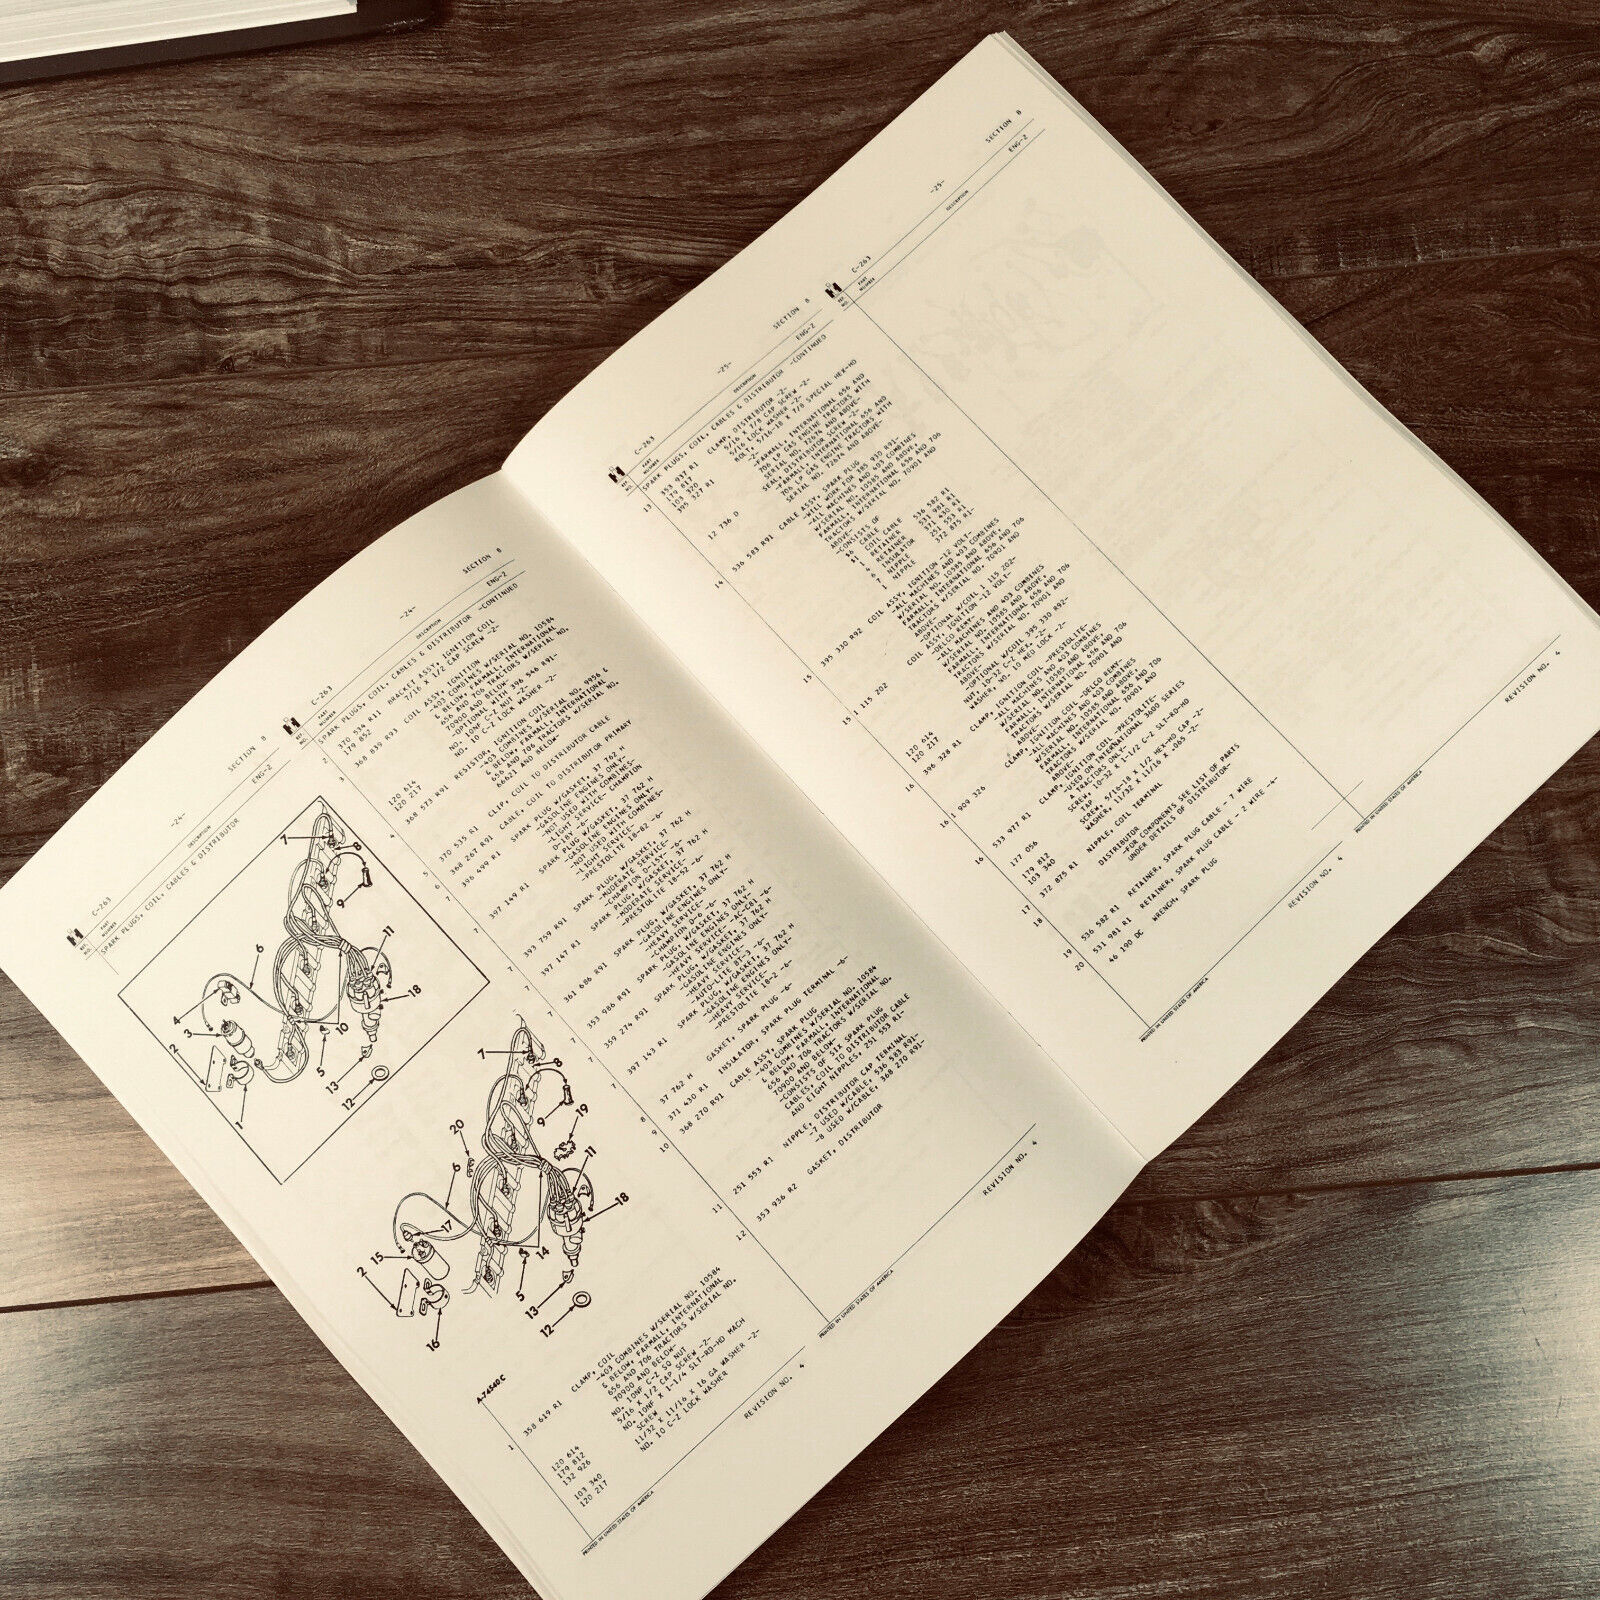 C-263
-24-
SECTION B
REF. NO.
PART NUMBER
DESCRIPTION
ENG-2
SPARK PLUGS, COIL, CABLES & DISTRIBUTOR
7
8
9
6
11
4
3
18
10
2
5
13
12
1
7
8
9
19
20
6
11
18
17
15
14
2
5
13
12
16
A-74540C
1 358 619 R1 CLAMP, COIL
-403 COMBINES W/SERIAL NO. 10584
& BELOW, FARMALL, INTERNATIONAL
656 AND 706 TRACTORS W/SERIAL NO.
70900 AND BELOW-
120 614 NO. 10NF C-Z SQ NUT
179 812 5/16 X 1/2 CAP SCREW -2-
132 926 NO. 10NF X 1-1/4 SLT-RD-HD MACH
SCREW
103 340 11/32 X 11/16 X 16 GA WASHER -2-
120 217 NO. 10 C-Z LOCK WASHER
PRINTED IN UNITED STATES OF AMERICA
REVISION NO. 4
C-263
-24-
SECTION B
REF. NO.
PART NUMBER
DESCRIPTION
ENG-2
SPARK PLUGS, COIL, CABLES & DISTRIBUTOR -CONTINUED
2 370 594 R11 BRACKET ASSY, IGNITION COIL
179 852 7/16 X 1-1/2 CAP SCREW -2-
3 368 839 R93 COIL ASSY, IGNITION
-403 COMBINES W/SERIAL NO. 10584
& BELOW, FARMALL, INTERNATIONAL
656 AND 706 TRACTORS W/SERIAL NO.
70900 AND BELOW-
-OPTIONAL WITH 396 546 R91-
120 614 NO. 10NF C-Z NUT -2-
120 217 NO. 10 C-Z LOCK WASHER -2-
368 573 R91 RESISTOR, IGNITION COIL
-403 COMBINES W/SERIAL NO. 9956
& BELOW, FARMALL, INTERNATIONAL
656 AND 706 TRACTORS W/SERIAL NO.
46621 AND BELOW-
4 370 535 R1 CLIP, COIL TO DISTRIBUTOR CABLE
5 368 267 R91 CABLE, COIL TO DISTRIBUTOR PRIMARY
6 396 499 R1 SPARK PLUG W/GASKET, 37 762 H
-GASOLINE ENGINES ONLY-
-NOT USED WITH COMBINES-
-LIGHT SERVICE- CHAMPION
D-18Y -6-
7 397 149 R1 SPARK PLUG W/GASKET, 37 762 H
-GASOLINE ENGINES ONLY-
-NOT USED WITH COMBINES-
-LIGHT SERVICE-
-PRESTOLITE 18-82 -6-
7 393 759 R91 SPARK PLUG, W/GASKET, 37 762 H
-MODERATE SERVICE-
-CHAMPION D-15Y -6-
7 397 147 R1 SPARK PLUG, W/GASKET, 37 762 H
-MODERATE SERVICE-
-PRESTOLITE 18-52 -6-
7 361 686 R91 SPARK PLUG, W/GASKET, 37 762 H
-GASOLINE ENGINES ONLY-
-HEAVY SERVICE-
-CHAMPION D-6 -6-
7 353 986 R91 SPARK PLUG, W/GASKET, 37 762 H
-GASOLINE ENGINES ONLY-
-HEAVY SERVICE- -AC-C81 -6-
7 359 274 R91 SPARK PLUG, W/GASKET, 37 762 H
-GASOLINE ENGINES ONLY-
-HEAVY SERVICE-
-AUTO-LITE BT-3 -6-
7 397 143 R1 SPARK PLUG, W/GASKET, 37 762 H
-GASOLINE ENGINES ONLY-
-HEAVY SERVICE-
-PRESTOLITE 18-2 -6-
37 762 H GASKET, SPARK PLUG -6-
8 371 430 R1 INSULATOR, SPARK PLUG TERMINAL -6-
9
10 368 270 R91 CABLE ASSY, SPARK PLUG
-403 COMBINES W/SERIAL NO. 10584
& BELOW, FARMALL, INTERNATIONAL
656 AND 706 TRACTORS W/SERIAL NO.
70900 AND BELOW-
-CONSISTS OF SIX SPARK PLUG
CABLES, COIL TO DISTRIBUTOR CABLE
AND EIGHT NIPPLES, 251 553 R1-
11 251 553 R1 NIPPLE, DISTRIBUTOR CAP TERMINAL
-7 USED W/CABLE, 536 583 R91-
-8 USED W/CABLE, 368 270 R91-
12 353 936 R2 GASKET, DISTRIBUTOR
PRINTED IN UNITED STATES OF AMERICA
REVISION NO. 4
C-263
-25-
SECTION B
REF. NO.
PART NUMBER
DESCRIPTION
ENG-2
SPARK PLUGS, COIL, CABLES & DISTRIBUTOR -CONTINUED
13 353 937 R1 CLAMP, DISTRIBUTOR -2-
179 817 5/16 X 7/8 CAP SCREW -2-
103 320 5/16 LOCK WASHER -2-
395 327 R1 BOLT, 5/16-18 X 7/8 SPECIAL HEX-HD
-2-
-FARMALL, INTERNATIONAL 656 AND
706 LP GAS ENGINE TRACTORS WITH
SERIAL NO. AND ABOVE-
12 736 D SEAL, DISTRIBUTOR SCREW -2-
-FARMALL, INTERNATIONAL 656 AND
706 LP GAS ENGINE TRACTORS WITH
SERIAL NO. AND ABOVE-
14 536 583 R91 CABLE ASSY, SPARK PLUG
-WILL WORK FOR 385 930 R91-
-ALL MACHINES AND 403 COMBINES
W/SERIAL NO. 10585 AND ABOVE,
FARMALL, INTERNATIONAL 656 AND 706
TRACTORS W/SERIAL NO. 70901 AND
ABOVE-
-CONSISTS OF
1 COIL CABLE
RETAINER 536 582 R1
1 RETAINER 531 981 R1
6 INSULATOR 371 430 R1
7 NIPPLE 251 553 R1
1 NIPPLE 372 875 R1-
15 395 330 R92 COIL ASSY, IGNITION -12 VOLT-
-ALL MACHINES AND 403 COMBINES
W/SERIAL NO. 10585 AND ABOVE,
FARMALL, INTERNATIONAL 656 AND 706
TRACTORS W/SERIAL NO. 70901 AND
ABOVE-
-OPTIONAL W/COIL 1 115 202-
15 1 115 202 COIL ASSY, IGNITION -12 VOLT-
-DELCO REMY-
-ALL MACHINES AND 403 COMBINES
W/SERIAL NO. 10585 AND ABOVE,
FARMALL, INTERNATIONAL 656 AND 706
TRACTORS W/SERIAL NO. 70901 AND
ABOVE-
-OPTIONAL W/COIL 395 330 R92-
120 614 NUT, 10-32 C-Z HEX. -2-
120 217 WASHER, NO. 10 MED LOCK -2-
16 396 328 R1 CLAMP, IGNITION COIL -PRESTOLITE-
-ALL MACHINES AND 403 COMBINES
W/SERIAL NO. 10585 AND ABOVE,
FARMALL, INTERNATIONAL 656 AND 706
TRACTORS W/SERIAL NO. 70901 AND
ABOVE-
16 1 909 326 CLAMP, IGNITION COIL -DELCO REMY-
-ALL MACHINES AND 403 COMBINES
W/SERIAL NO. 10585 AND ABOVE
FARMALL, INTERNATIONAL 656 AND 706
TRACTORS W/SERIAL NO. 70901 AND
ABOVE-
16 533 977 R1 CLAMP, IGNITION COIL -PRESTOLITE-
-USED ON INTERNATIONAL 3600 SERIES
A TRACTORS ONLY-
127 056 SCREW, 10-32 X 1-1/2 C-Z SLT-RD-HD
CAP
179 812 SCREW, 5/16-18 X 1/2 HEX-HD CAP -2-
103 340 WASHER 11/32 X 11/16 X .065 -2-
17 372 875 R1 NIPPLE, COIL TERMINAL
18 DISTRIBUTOR COMPONENTS SEE LIST OF PARTS
-FOR DETAILS OF DISTRIBUTOR-
UNDER
19 536 582 R1 RETAINER, SPARK PLUG CABLE - 7 WIRE
20 531 981 R1 RETAINER, SPARK PLUG CABLE - 2 WIRE -4-
46 190 DC WRENCH, SPARK PLUG
PRINTED IN UNITED STATES OF AMERICA
REVISION NO. 4
C-263
-25-
SECTION B
REF. NO.
PART NUMBER
DESCRIPTION
ENG-2
PRINTED IN UNITED STATES OF AMERICA
REVISION NO. 4